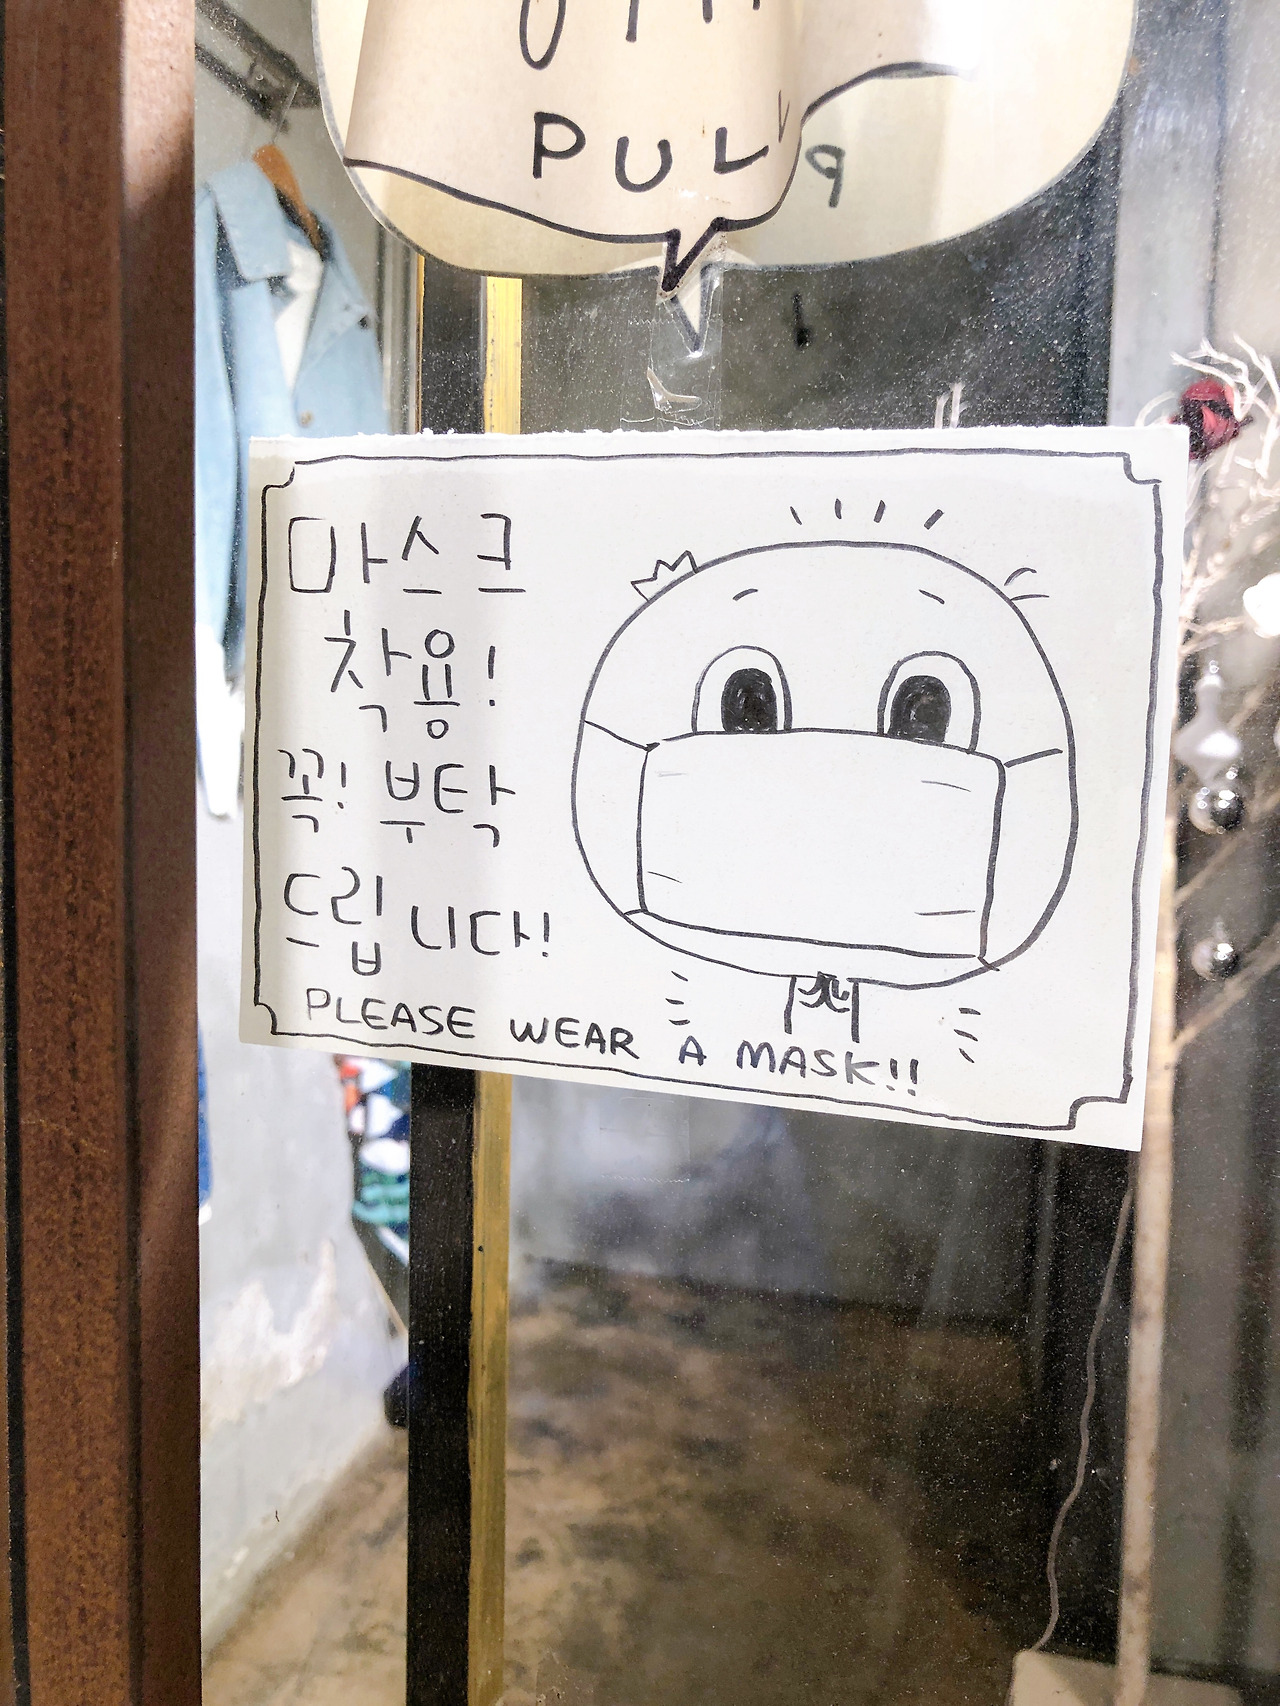 PULL
마스크
착용!
꼭! 부탁
드립니다!
PLEASE WEAR A MASK!!